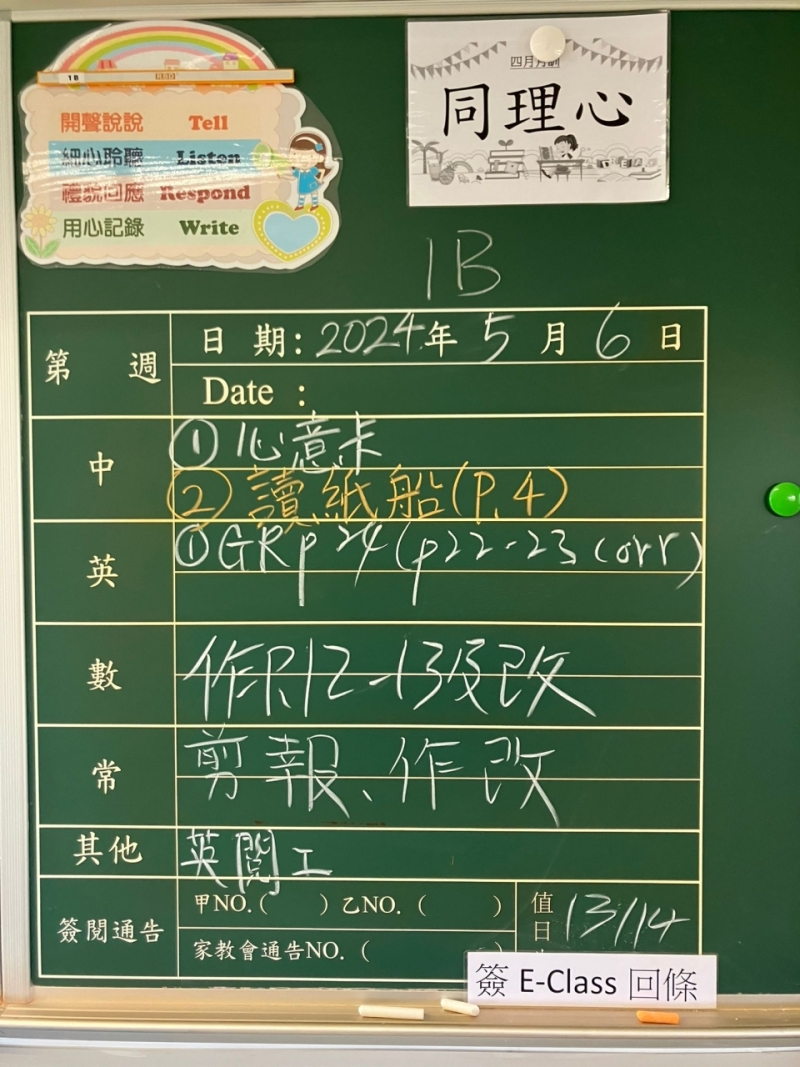 1B
開聲說說 Tell
細心聆聽 Listen
禮貌回應 Respond
用心記錄 Write
四月月訓
同理心
1B
第 週
日 期: 2024 年 5 月 6 日
Date :
中
① 心意卡
② 讀紙船(P.4)
英
① GRp24(p22-23 corr)
數
作P.12-13及改
常
剪報、作改
其他
英閱工
簽閱通告
甲NO.( ) 乙NO. ( )
家教會通告NO. (
值日
13/14
簽 E-Class 回條